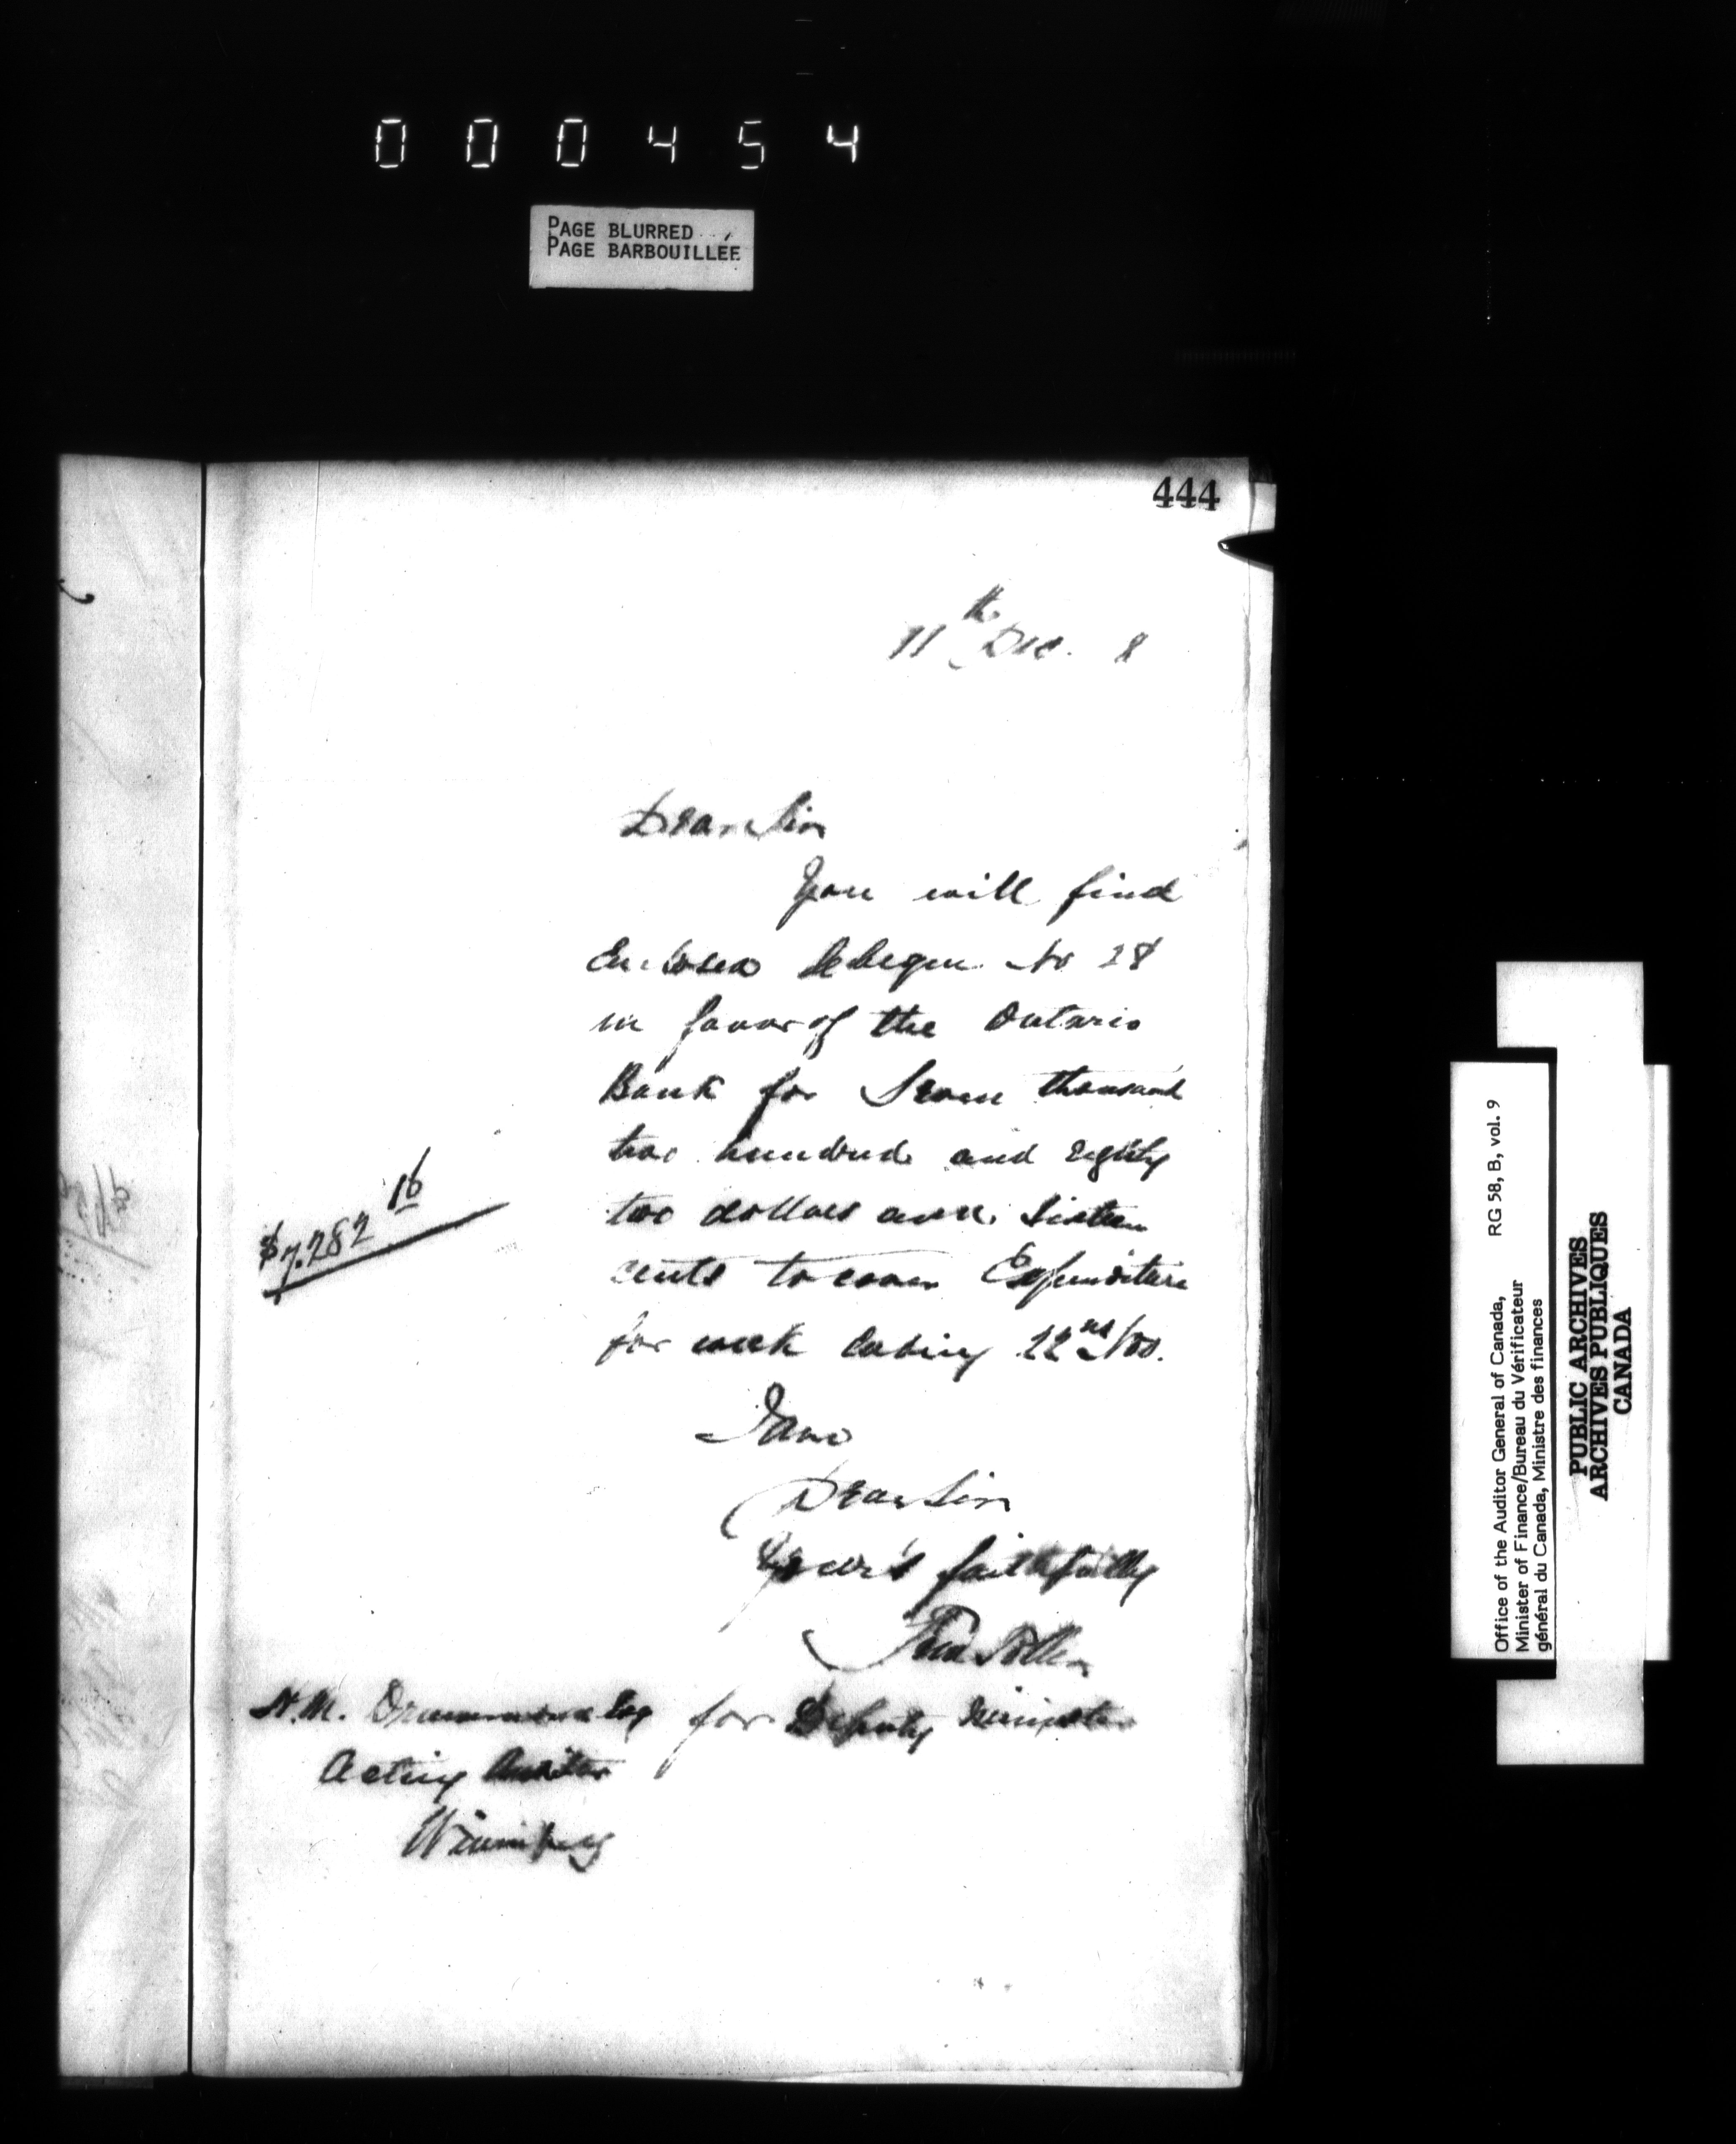 000454
PAGE BLURRED
PAGE BARBOUILLÉE
444
11th Dec. 8
Dear Sir
You will find
Enclosed Cheque No 28
in favor of the Ontario
Bank for Seven thousand
two hundred and eighty
two dollars and Sixteen
cents to cover Expenditure
for week ending 22nd
$7.282 16
I am
Dear Sir
Your's faithfully
for Deputy Minister
H.M. Drummond Esq
Acting Auditor
Winnipeg
Office of the Auditor General of Canada, RG 58, B, vol. 9
Minister of Finance/Bureau du Vérificateur
général du Canada, Ministre des finances
PUBLIC ARCHIVES
ARCHIVES PUBLIQUES
CANADA